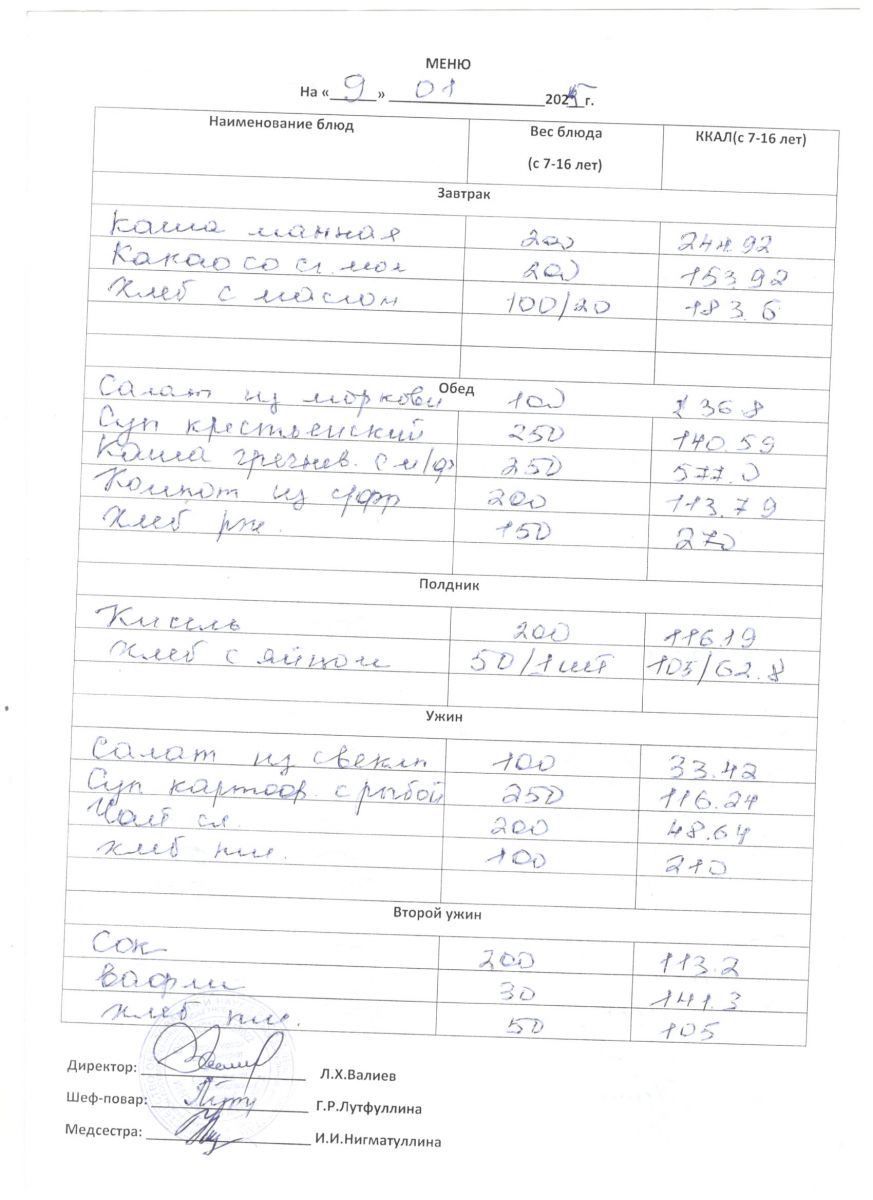 МЕНЮ
На « 9 » 01 2025 г.
Наименование блюд Вес блюда (с 7-16 лет) ККАЛ(с 7-16 лет)
Завтрак
Каша манная 200 244.92
Какао со сг. мол 200 153 92
Хлеб с маслом 100/20 183.6
Обед
Салат из моркови 100 136.8
Суп крестьенский 250 140.59
Каша гречнев. с м/ф 250 577.0
Компот из с/фр 200 113.79
Хлеб рж. 150 270
Полдник
Кисель 200 116.19
Хлеб с яйцом 50/1шт 105/62.8
Ужин
Салат из свеклы 100 33.42
Суп картоф. с рыбой 250 116.24
Чай сл. 200 48.64
Хлеб пш. 100 210
Второй ужин
Сок 200 113.2
Вафли 30 141.3
Хлеб пш. 50 105
Директор: Л.Х.Валиев
Шеф-повар: Г.Р.Лутфуллина
Медсестра: И.И.Нигматуллина